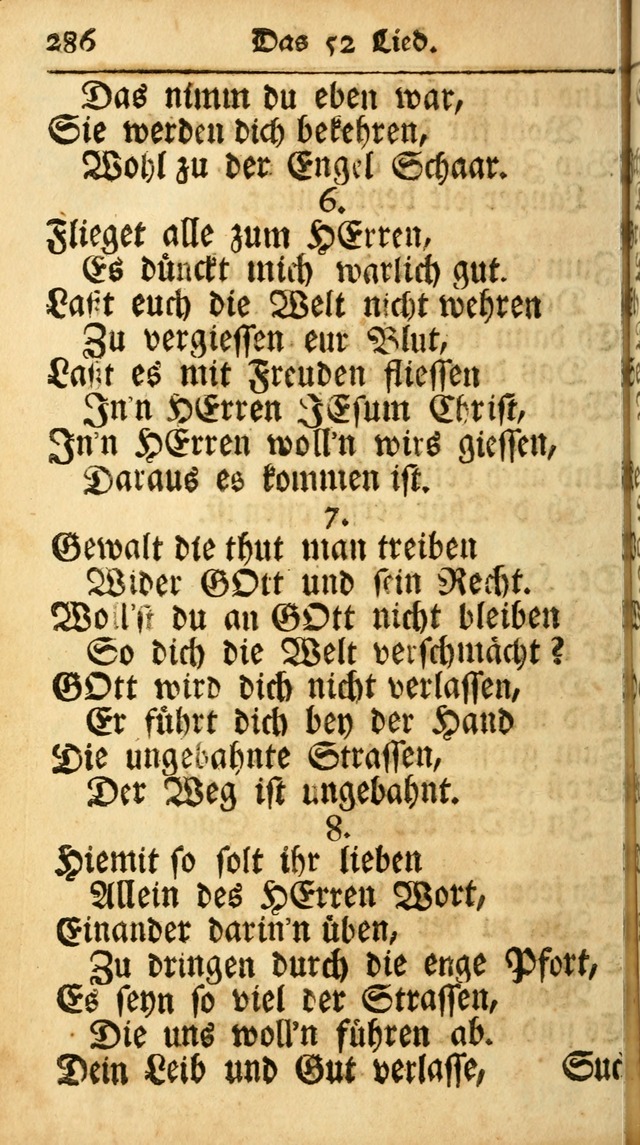 286 Das 52 Lied.
Das nimm du eben war,
Sie werden dich bekehren,
Wohl zu der Engel Schaar.
6.
Flieget alle zum HErren,
Es dünckt mich warlich gut.
Laßt euch die Welt nicht wehren
Zu vergiessen eur Blut,
Laßt es mit Freuden fliessen
In'n HErren JEsum Christ,
In'n HErren woll'n wirs giessen,
Daraus es kommen ist.
7.
Gewalt die thut man treiben
Wider GOtt und sein Recht.
Woll'st du an GOtt nicht bleiben
So dich die Welt verschmächt?
GOtt wird dich nicht verlassen,
Er führt dich bey der Hand
Die ungebahnte Strassen,
Der Weg ist ungebahnt.
8.
Hiemit so solt ihr lieben
Allein des HErren Wort,
Einander darin'n üben,
Zu dringen durch die enge Pfort,
Es seyn so viel der Strassen,
Die uns woll'n führen ab.
Dein Leib und Gut verlasse, Suc